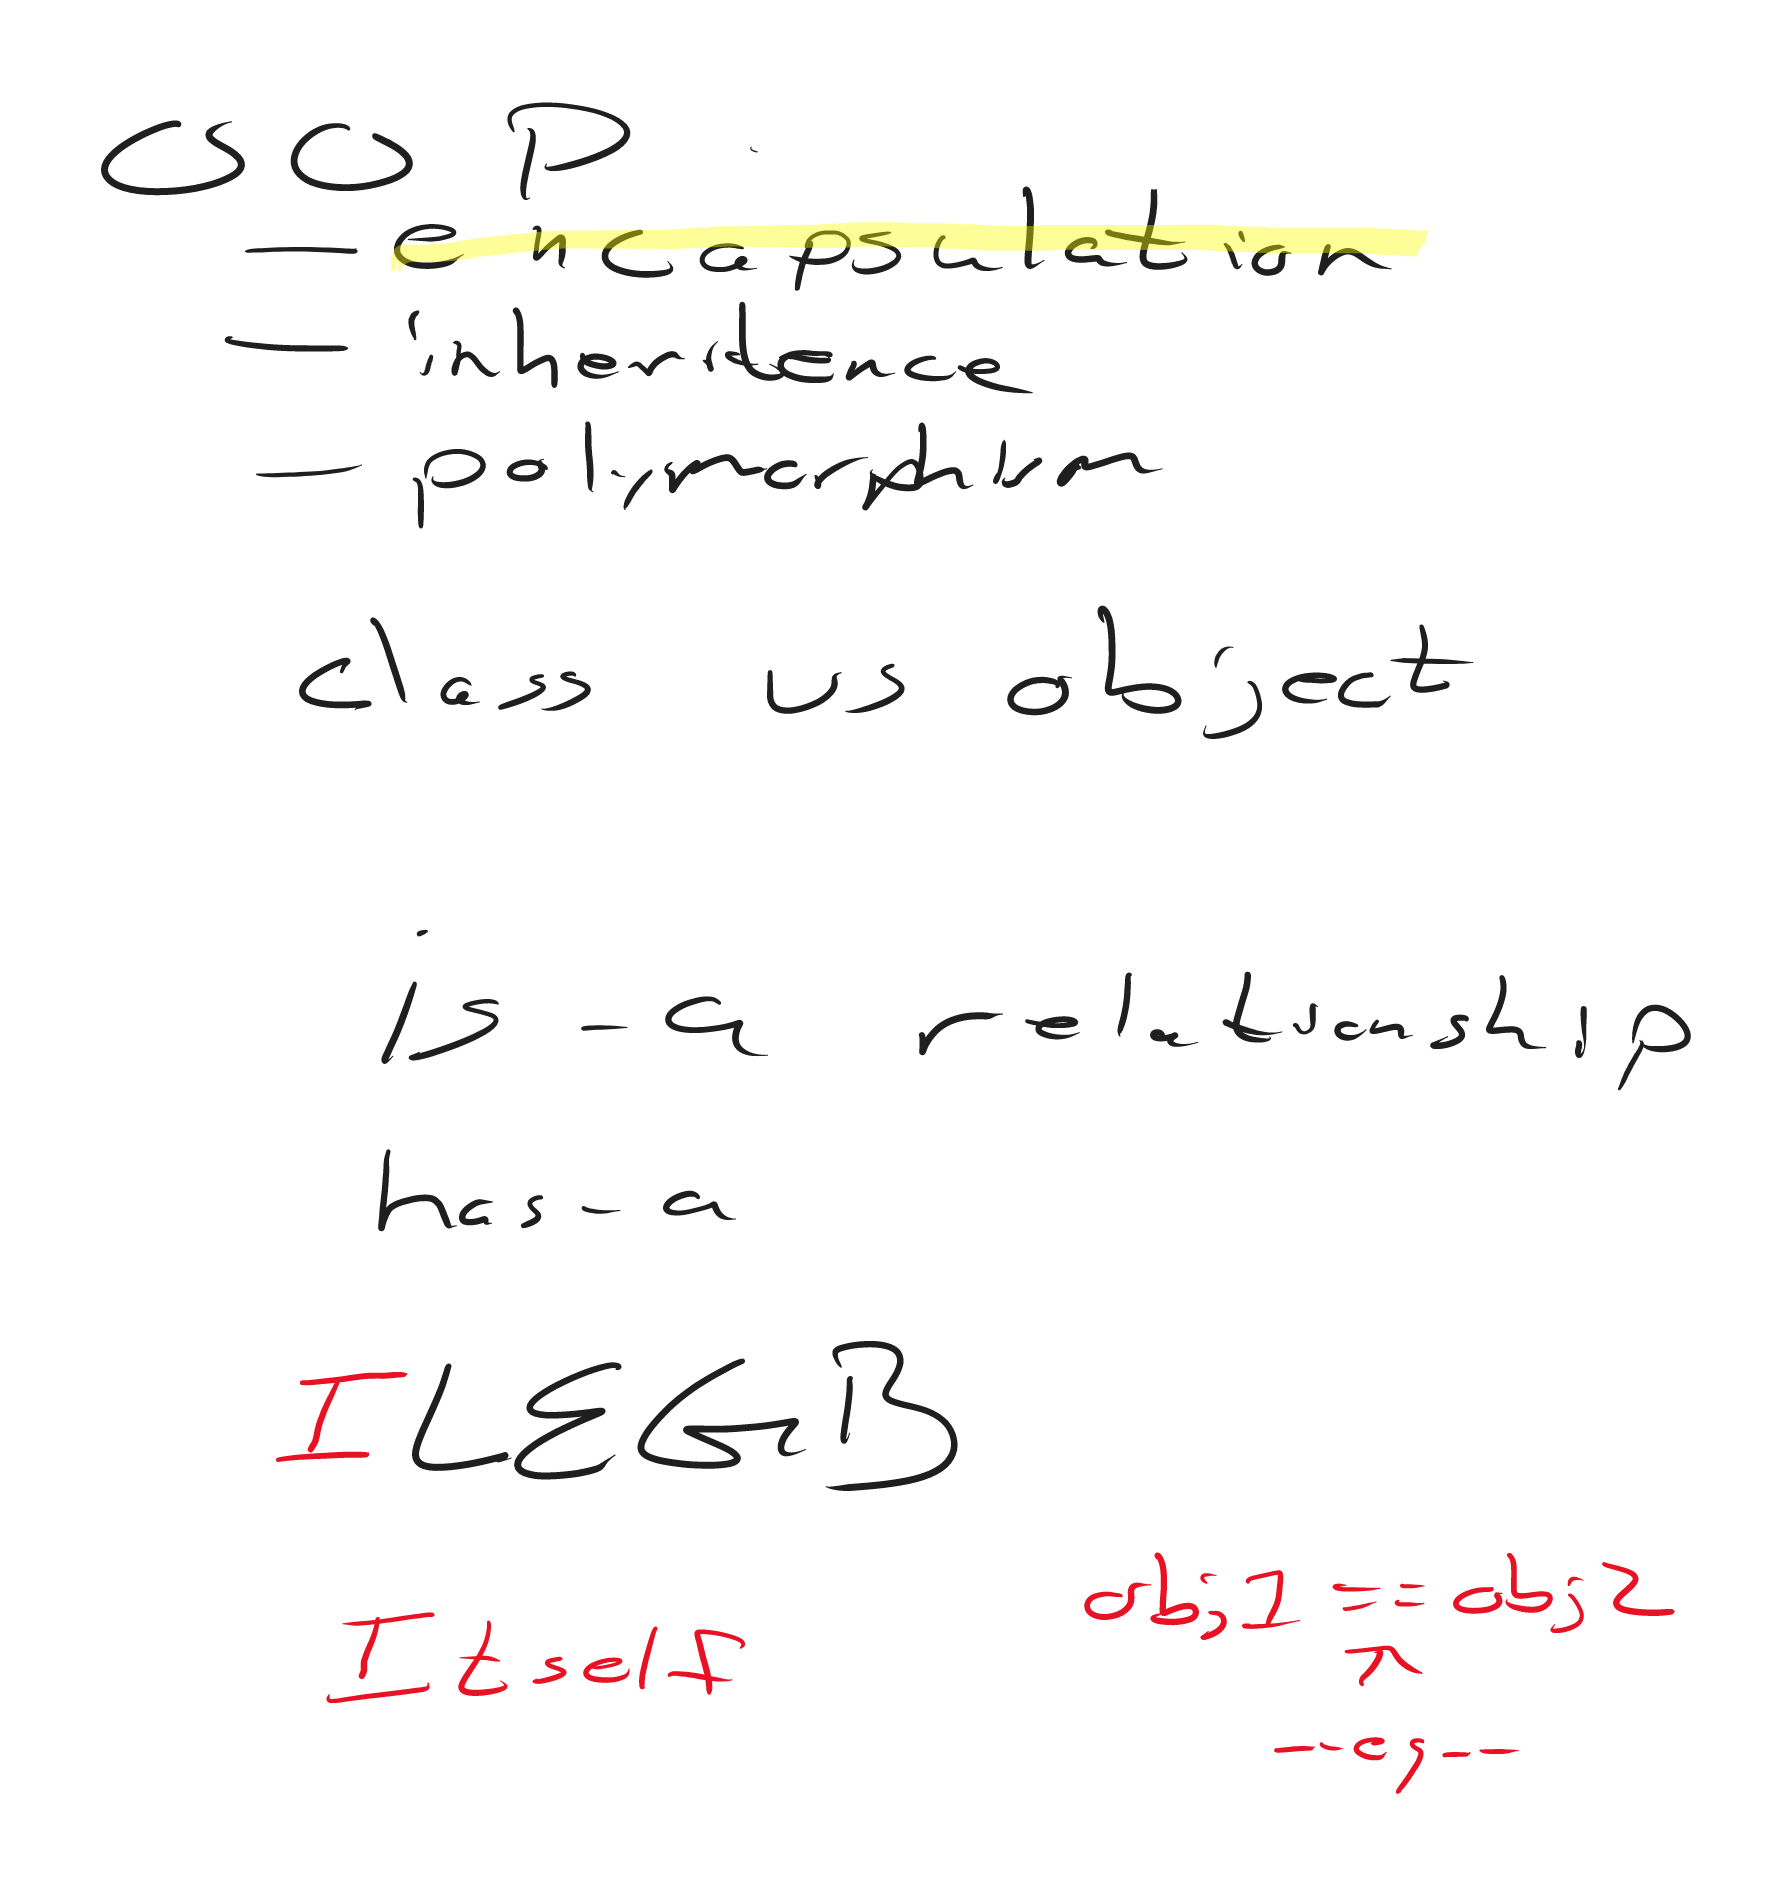 OOP
- encapsulation
- inheridence
- polymorphism
class vs object
is-a relationship
has-a
ILEGB
Itself
obj1 == obj2
^
--eq--